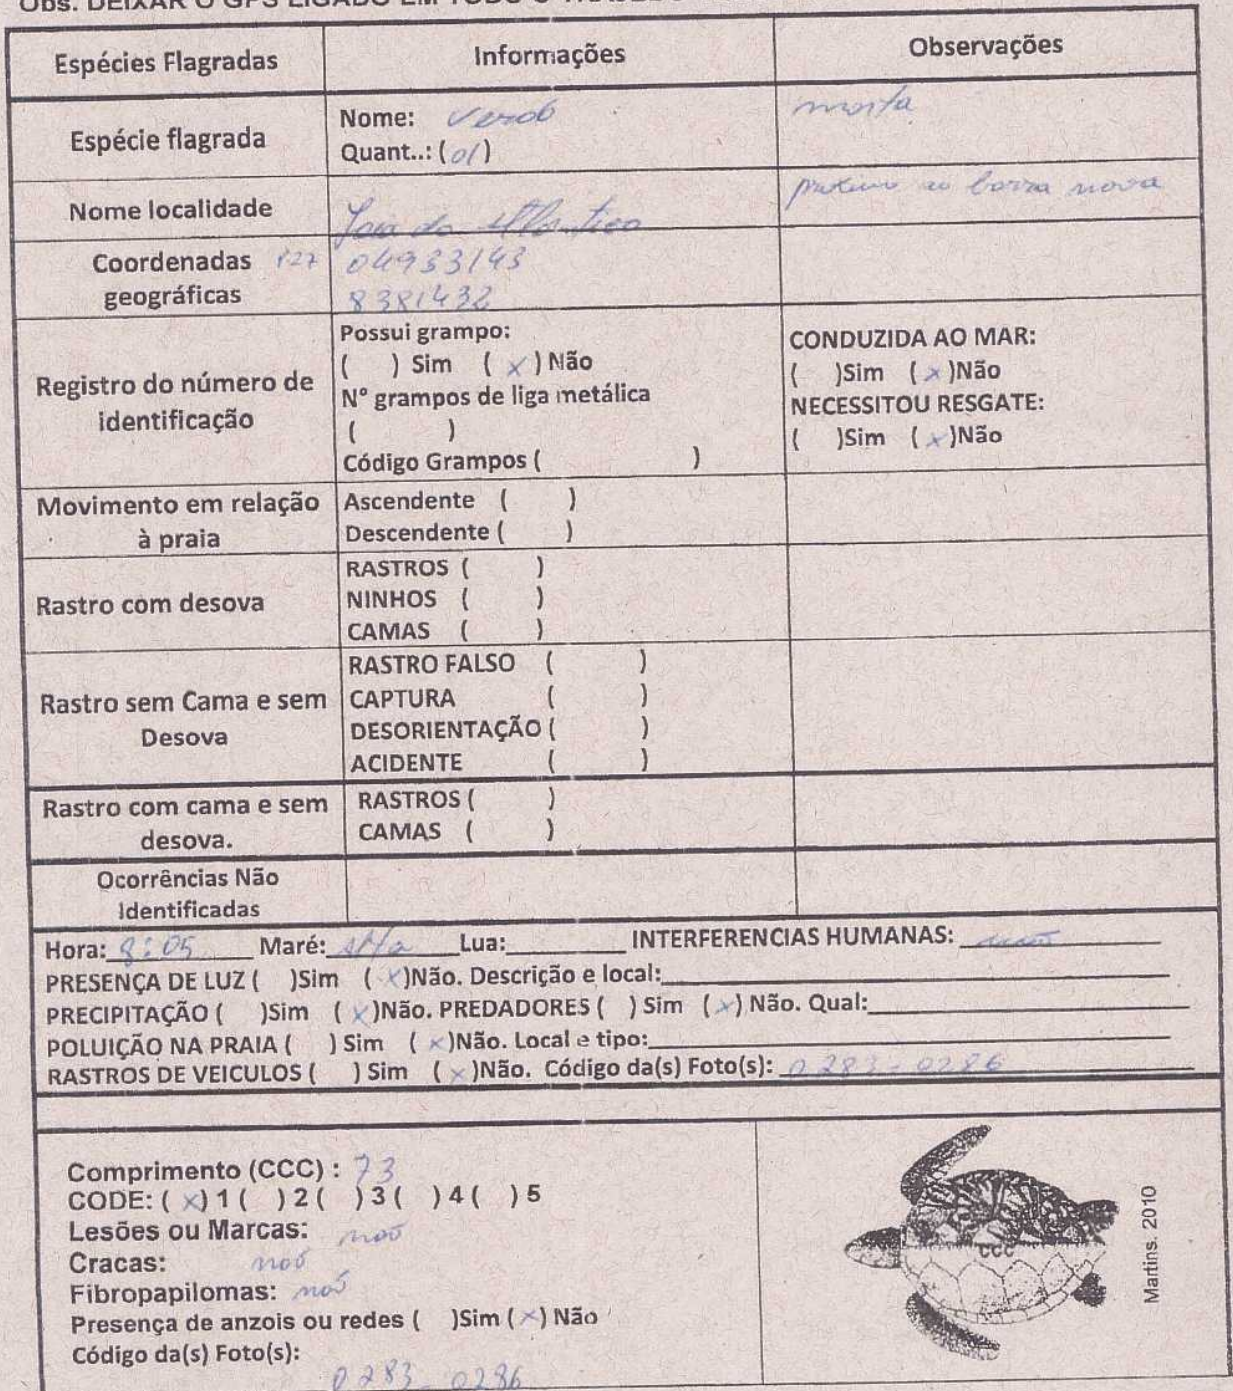 Obs. DEIXAR O GPS LIGADO EM TODO O
Espécies Flagradas Informações Observações
Espécie flagrada
Nome:
Quant..: (01)
morta
Nome localidade
do Atlantico
barra nova
Coordenadas geográficas
04933143
8381432
Registro do número de identificação
Possui grampo:
( ) Sim (x) Não
N° grampos de liga metálica
( )
Código Grampos ( )
CONDUZIDA AO MAR:
( )Sim (x)Não
NECESSITOU RESGATE:
( )Sim (x)Não
Movimento em relação à praia
Ascendente ( )
Descendente ( )
Rastro com desova
RASTROS ( )
NINHOS ( )
CAMAS ( )
Rastro sem Cama e sem Desova
RASTRO FALSO ( )
CAPTURA ( )
DESORIENTAÇÃO ( )
ACIDENTE ( )
Rastro com cama e sem desova.
RASTROS ( )
CAMAS ( )
Ocorrências Não Identificadas
Hora: 8:05 Maré: alta Lua: INTERFERENCIAS HUMANAS: não
PRESENÇA DE LUZ ( )Sim (x)Não. Descrição e local:
PRECIPITAÇÃO ( )Sim (x)Não. PREDADORES ( ) Sim (x) Não. Qual:
POLUIÇÃO NA PRAIA ( ) Sim (x)Não. Local e tipo:
RASTROS DE VEICULOS ( ) Sim (x)Não. Código da(s) Foto(s): 0283-0286
Comprimento (CCC) : 73
CODE: (x) 1 ( ) 2 ( ) 3 ( ) 4 ( ) 5
Lesões ou Marcas: não
Cracas: não
Fibropapilomas: não
Presença de anzois ou redes ( )Sim (x) Não
Código da(s) Foto(s):
0283-0286
CCC
Martins. 2010